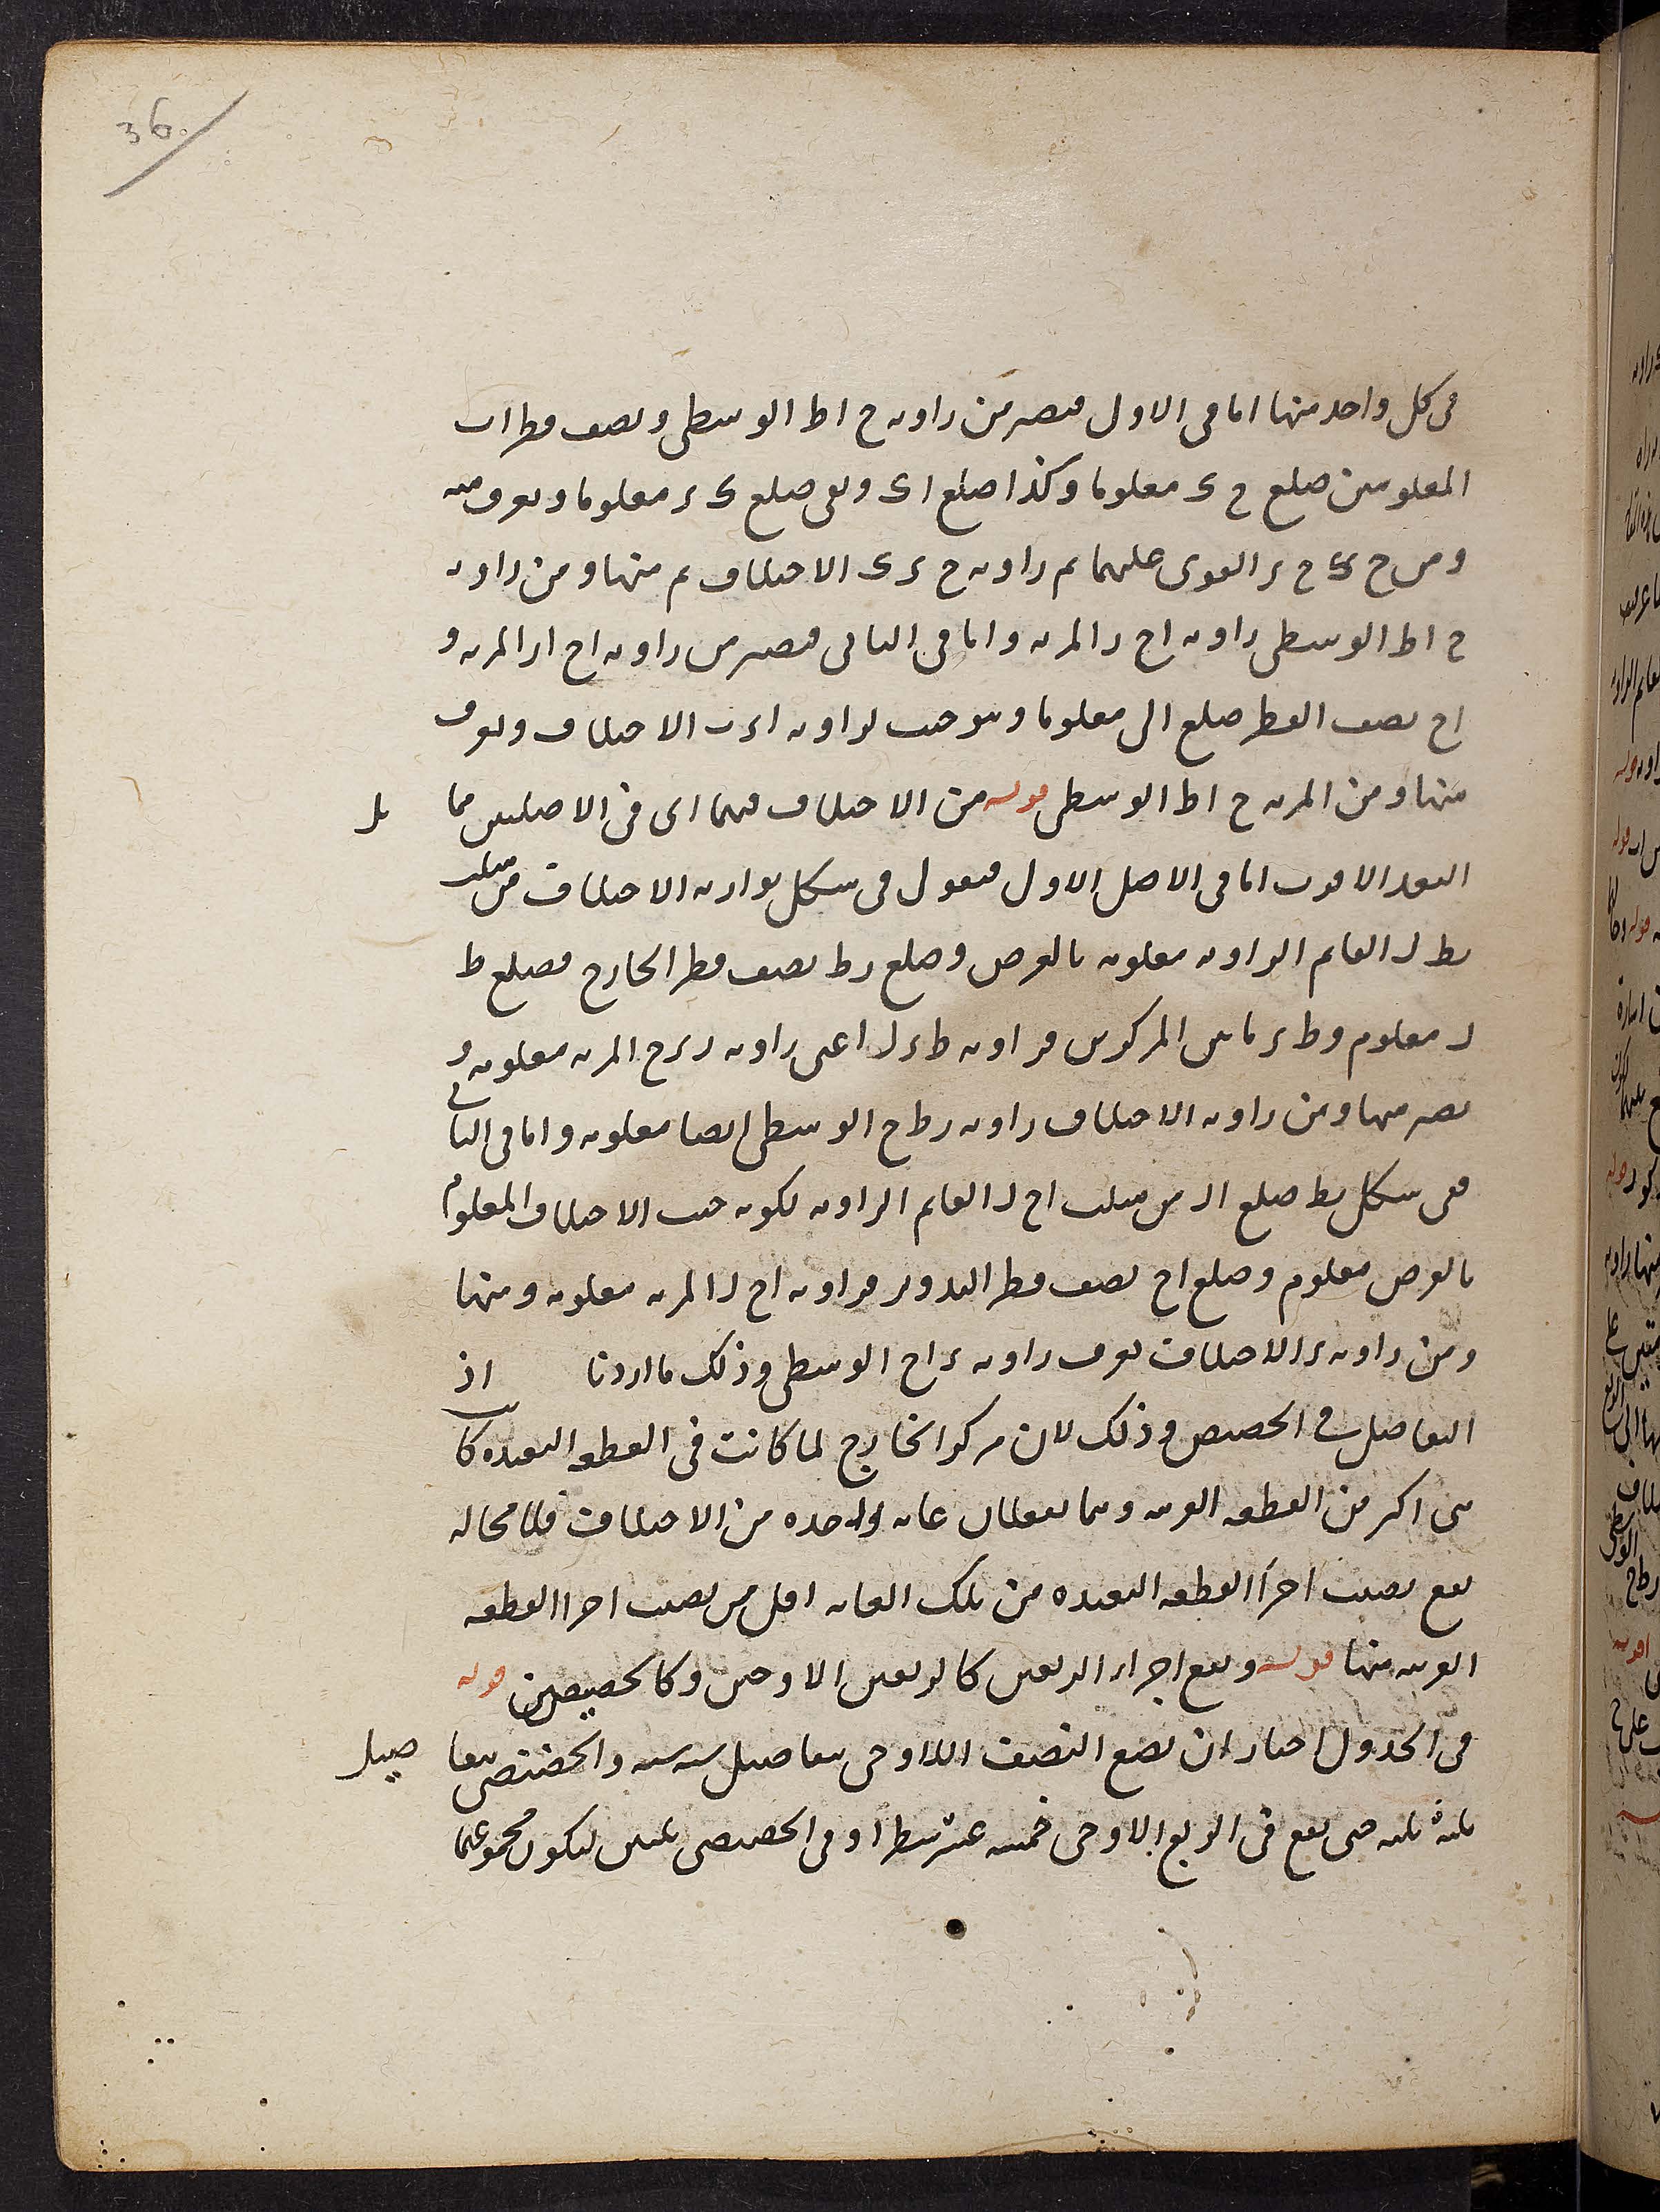 36
فى كل واحد منها اما فى الاول فيصير من زاويه ح اط الوسطى ونصف قطر اب
المعلومين ضلع ح ى معلوما وكذا ضلع اى وبقى ضلع ى ر معلوما ويعرف منه
ومن ح ى ح ر القوى عليهما ثم زاويه ح ر ى الاختلاف ثم منها ومن زاويه
ح اط الوسطى زاويه اح ر المريه واما فى الثانى فيصير من زاويه اح ار المريه و
اح نصف القطر ضلع ال معلوما وهو جيب لزاويه ارب الاختلاف ويعرف
منها ومن المريه ح اط الوسطى قوله من الاختلاف فيهما اى فى الاصلين مما يل
البعد الاقرب اما فى الاصل الاول فنقول فى شكل يو اريه الاختلاف من مثلث
رط ل القايم الزاويه معلومه بالفرض وضلع رط نصف قطر الخارج فضلع ط
ل معلوم وط ر مابين المركزين فزاويه ط ر ل اعنى زاويه د ر ح المريه معلومه و
يصير منها ومن زاويه الاختلاف زاويه رط ح الوسطى ايضا معلومه واما فى الثانى
ففى شكل يط ضلع ال من مثلث اح ل القايم الزاويه لكونه جيب الاختلاف المعلوم
بالفرض معلوم وضلع اح نصف قطر التدوير فزاويه اح ل المريه معلومه ومنها
ومن زاويه ر الاختلاف يعرف زاويه ر اح الوسطى وذلك ما اردنا اذ
التفاضل فى الحضيض وذلك لان مركز الخارج لما كانت فى القطعه البعيده كا
هى اكبر من القطعه القريبه وهما يقطعان غايه واحده من الاختلاف فلا محاله
يقع نصيب اجزا القطعه البعيده من تلك الغايه اقل من نصيب اجزا القطعه
القريبه منها قوله ويقع اجزاء الربعين كالربعين الاوجيين وكالحضيضيين قوله
فى الجدول اختار ان يضع النصف الاوجى بتفاضل سته سته والحضيضى بتفا ضيل
ثلثه ثلثه حتى يقع فى الربع الاوجى خمسه عشر سطرا وفى الحضيضى ثلثين ليكون مجموعهما